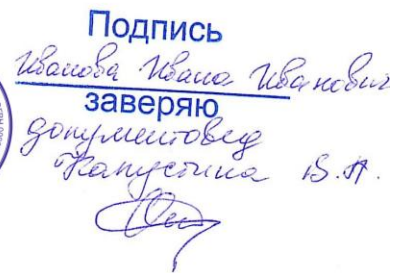 Подпись
Иванова Ивана Иванович
заверяю
документовед
Капустина В.А.